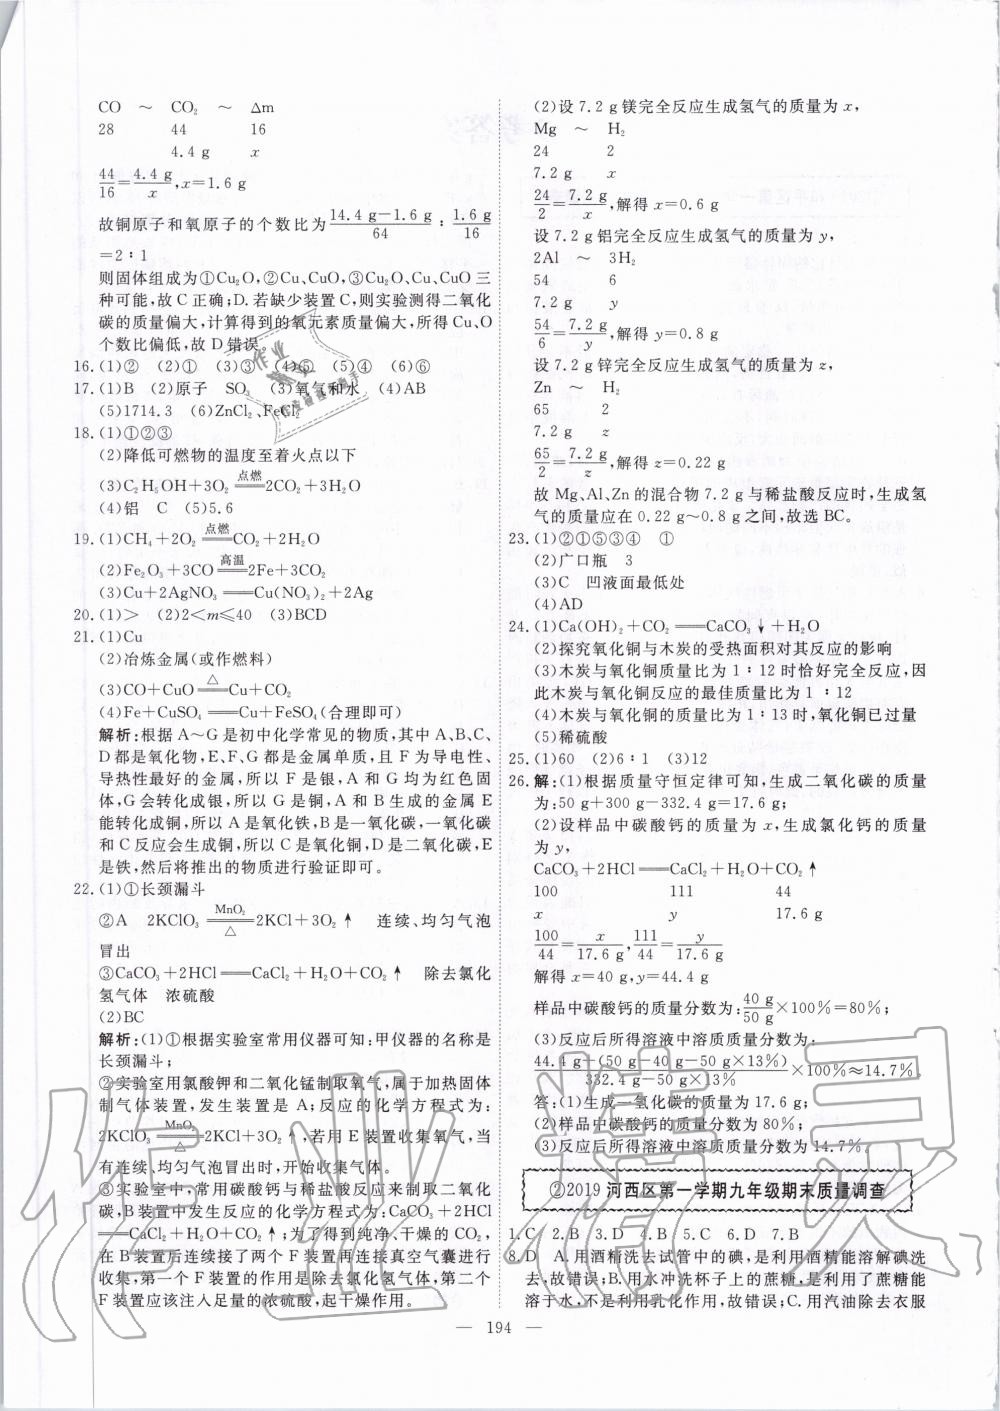 CO ～ CO₂ ～ Δm
28 44 16
4.4 g x
44/16=4.4 g/x,x=1.6 g
故铜原子和氧原子的个数比为(14.4 g－1.6 g)/64∶1.6 g/16
=2∶1
则固体组成为①Cu₂O,②Cu、CuO,③Cu₂O、Cu、CuO三
种可能,故C正确;D.若缺少装置C,则实验测得二氧化
碳的质量偏大,计算得到的氧元素质量偏大,所得Cu、O
个数比偏低,故D错误。
16.(1)② (2)① (3)③ (4)⑤ (5)④ (6)⑥
17.(1)B (2)原子 SO₃ (3)氧气和水 (4)AB
(5)1714.3 (6)ZnCl₂、FeCl₂
18.(1)①②③
(2)降低可燃物的温度至着火点以下
(3)C₂H₅OH＋3O₂ =点燃= 2CO₂＋3H₂O
(4)铝 C (5)5.6
19.(1)CH₄＋2O₂ =点燃= CO₂＋2H₂O
(2)Fe₂O₃＋3CO =高温= 2Fe＋3CO₂
(3)Cu＋2AgNO₃ == Cu(NO₃)₂＋2Ag
20.(1)＞ (2)2＜m≤40 (3)BCD
21.(1)Cu
(2)冶炼金属(或作燃料)
(3)CO＋CuO =△= Cu＋CO₂
(4)Fe＋CuSO₄ == Cu＋FeSO₄(合理即可)
解析:根据A～G是初中化学常见的物质,其中A、B、C、
D都是氧化物,E、F、G都是金属单质,且F为导电性、
导热性最好的金属,所以F是银,A和G均为红色固
体,G会转化成银,所以G是铜,A和B生成的金属E
能转化成铜,所以A是氧化铁,B是一氧化碳,一氧化碳
和C反应会生成铜,所以C是氧化铜,D是二氧化碳,E
是铁,然后将推出的物质进行验证即可。
22.(1)①长颈漏斗
②A 2KClO₃ =MnO₂/△= 2KCl＋3O₂↑ 连续、均匀气泡
冒出
③CaCO₃＋2HCl == CaCl₂＋H₂O＋CO₂↑ 除去氯化
氢气体 浓硫酸
(2)BC
解析:(1)①根据实验室常用仪器可知:甲仪器的名称是
长颈漏斗;
②实验室用氯酸钾和二氧化锰制取氧气,属于加热固体
制气体装置,发生装置是A;反应的化学方程式为:
2KClO₃ =MnO₂/△= 2KCl＋3O₂↑,若用E装置收集氧气,当
有连续、均匀气泡冒出时,开始收集气体。
③实验室中,常用碳酸钙与稀盐酸反应来制取二氧化
碳,B装置中发生反应的化学方程式为:CaCO₃＋2HCl
== CaCl₂＋H₂O＋CO₂↑;为了得到纯净、干燥的CO₂,
在B装置后连续接了两个F装置再连接真空气囊进行
收集,第一个F装置的作用是除去氯化氢气体,第二个
F装置应该注入足量的浓硫酸,起干燥作用。
(2)设7.2 g镁完全反应生成氢气的质量为x,
Mg ～ H₂
24 2
7.2 g x
24/2=7.2 g/x,解得x=0.6 g
设7.2 g铝完全反应生成氢气的质量为y,
2Al ～ 3H₂
54 6
7.2 g y
54/6=7.2 g/y,解得y=0.8 g
设7.2 g锌完全反应生成氢气的质量为z,
Zn ～ H₂
65 2
7.2 g z
65/2=7.2 g/z,解得z=0.22 g
故Mg、Al、Zn的混合物7.2 g与稀盐酸反应时,生成氢
气的质量应在0.22 g～0.8 g之间,故选BC。
23.(1)②①⑤③④ ①
(2)广口瓶 3
(3)C 凹液面最低处
(4)AD
24.(1)Ca(OH)₂＋CO₂ == CaCO₃↓＋H₂O
(2)探究氧化铜与木炭的受热面积对其反应的影响
(3)木炭与氧化铜质量比为1∶12时恰好完全反应,因
此木炭与氧化铜反应的最佳质量比为1∶12
(4)木炭与氧化铜的质量比为1∶13时,氧化铜已过量
(5)稀硫酸
25.(1)60 (2)6∶1 (3)12
26.解:(1)根据质量守恒定律可知,生成二氧化碳的质量
为:50 g＋300 g－332.4 g=17.6 g;
(2)设样品中碳酸钙的质量为x,生成氯化钙的质量
为y,
CaCO₃＋2HCl == CaCl₂＋H₂O＋CO₂↑
100 111 44
x y 17.6 g
100/44=x/17.6 g,111/44=y/17.6 g
解得x=40 g,y=44.4 g
样品中碳酸钙的质量分数为:40 g/50 g×100%=80%;
(3)反应后所得溶液中溶质质量分数为:
(44.4 g＋(50 g－40 g－50 g×13%))/(332.4 g－50 g×13%)×100%≈14.7%。
答:(1)生成二氧化碳的质量为17.6 g;
(2)样品中碳酸钙的质量分数为80%;
(3)反应后所得溶液中溶质质量分数为14.7%。
②2019河西区第一学期九年级期末质量调查
1.C 2.B 3.D 4.B 5.C 6.D 7.B
8.D A.用酒精洗去试管中的碘,是利用酒精能溶解碘洗
去,故错误;B.用水冲洗杯子上的蔗糖,是利用了蔗糖能
溶于水,不是利用乳化作用,故错误;C.用汽油除去衣服
— 194 —
作业精灵